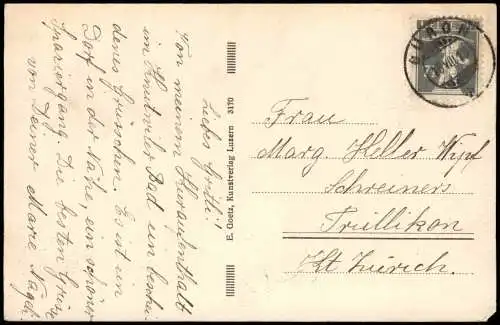 Liebes Gritli!
Von meinem Kuraufenthalt
im Knutwiler Bad ein beschei-
denes Grüsschen. Es ist ein
Dorf in der Nähe, ein schöner
Spaziergang. Die besten Grüsse
von Deiner Marie Nägeli
E. Goetz, Kunstverlag Luzern 3170
BÜRON
Frau
Marg. Heller Wipf
Schreiners
Trüllikon
Kt Zürich.